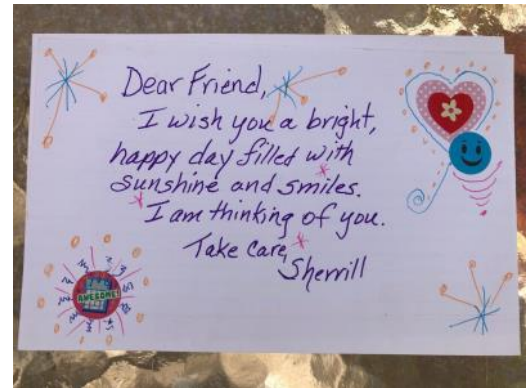 Dear Friend,
I wish you a bright,
happy day filled with
sunshine and smiles.
I am thinking of you.
Take Care,
Sherrill
AWESOME!